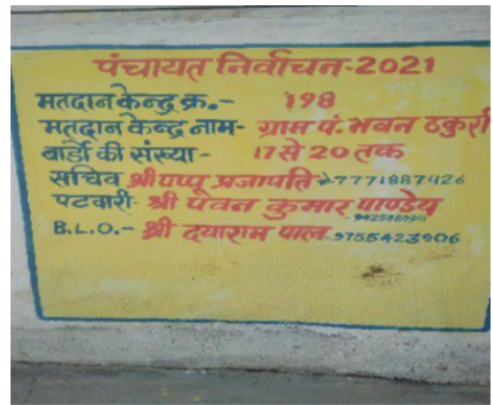 पंचायत निर्वाचन-2021
मतदान केन्द्र क्र.- 198
मतदान केन्द्र नाम- ग्राम पं. भवन ठकुर्रा
बार्डो की संख्या- 17 से 20 तक
सचिव श्री पप्पू प्रजापति 7771887426
पटवारी- श्री पवन कुमार पाण्डेय
B.L.O.- श्री दयाराम पाल 9755423906